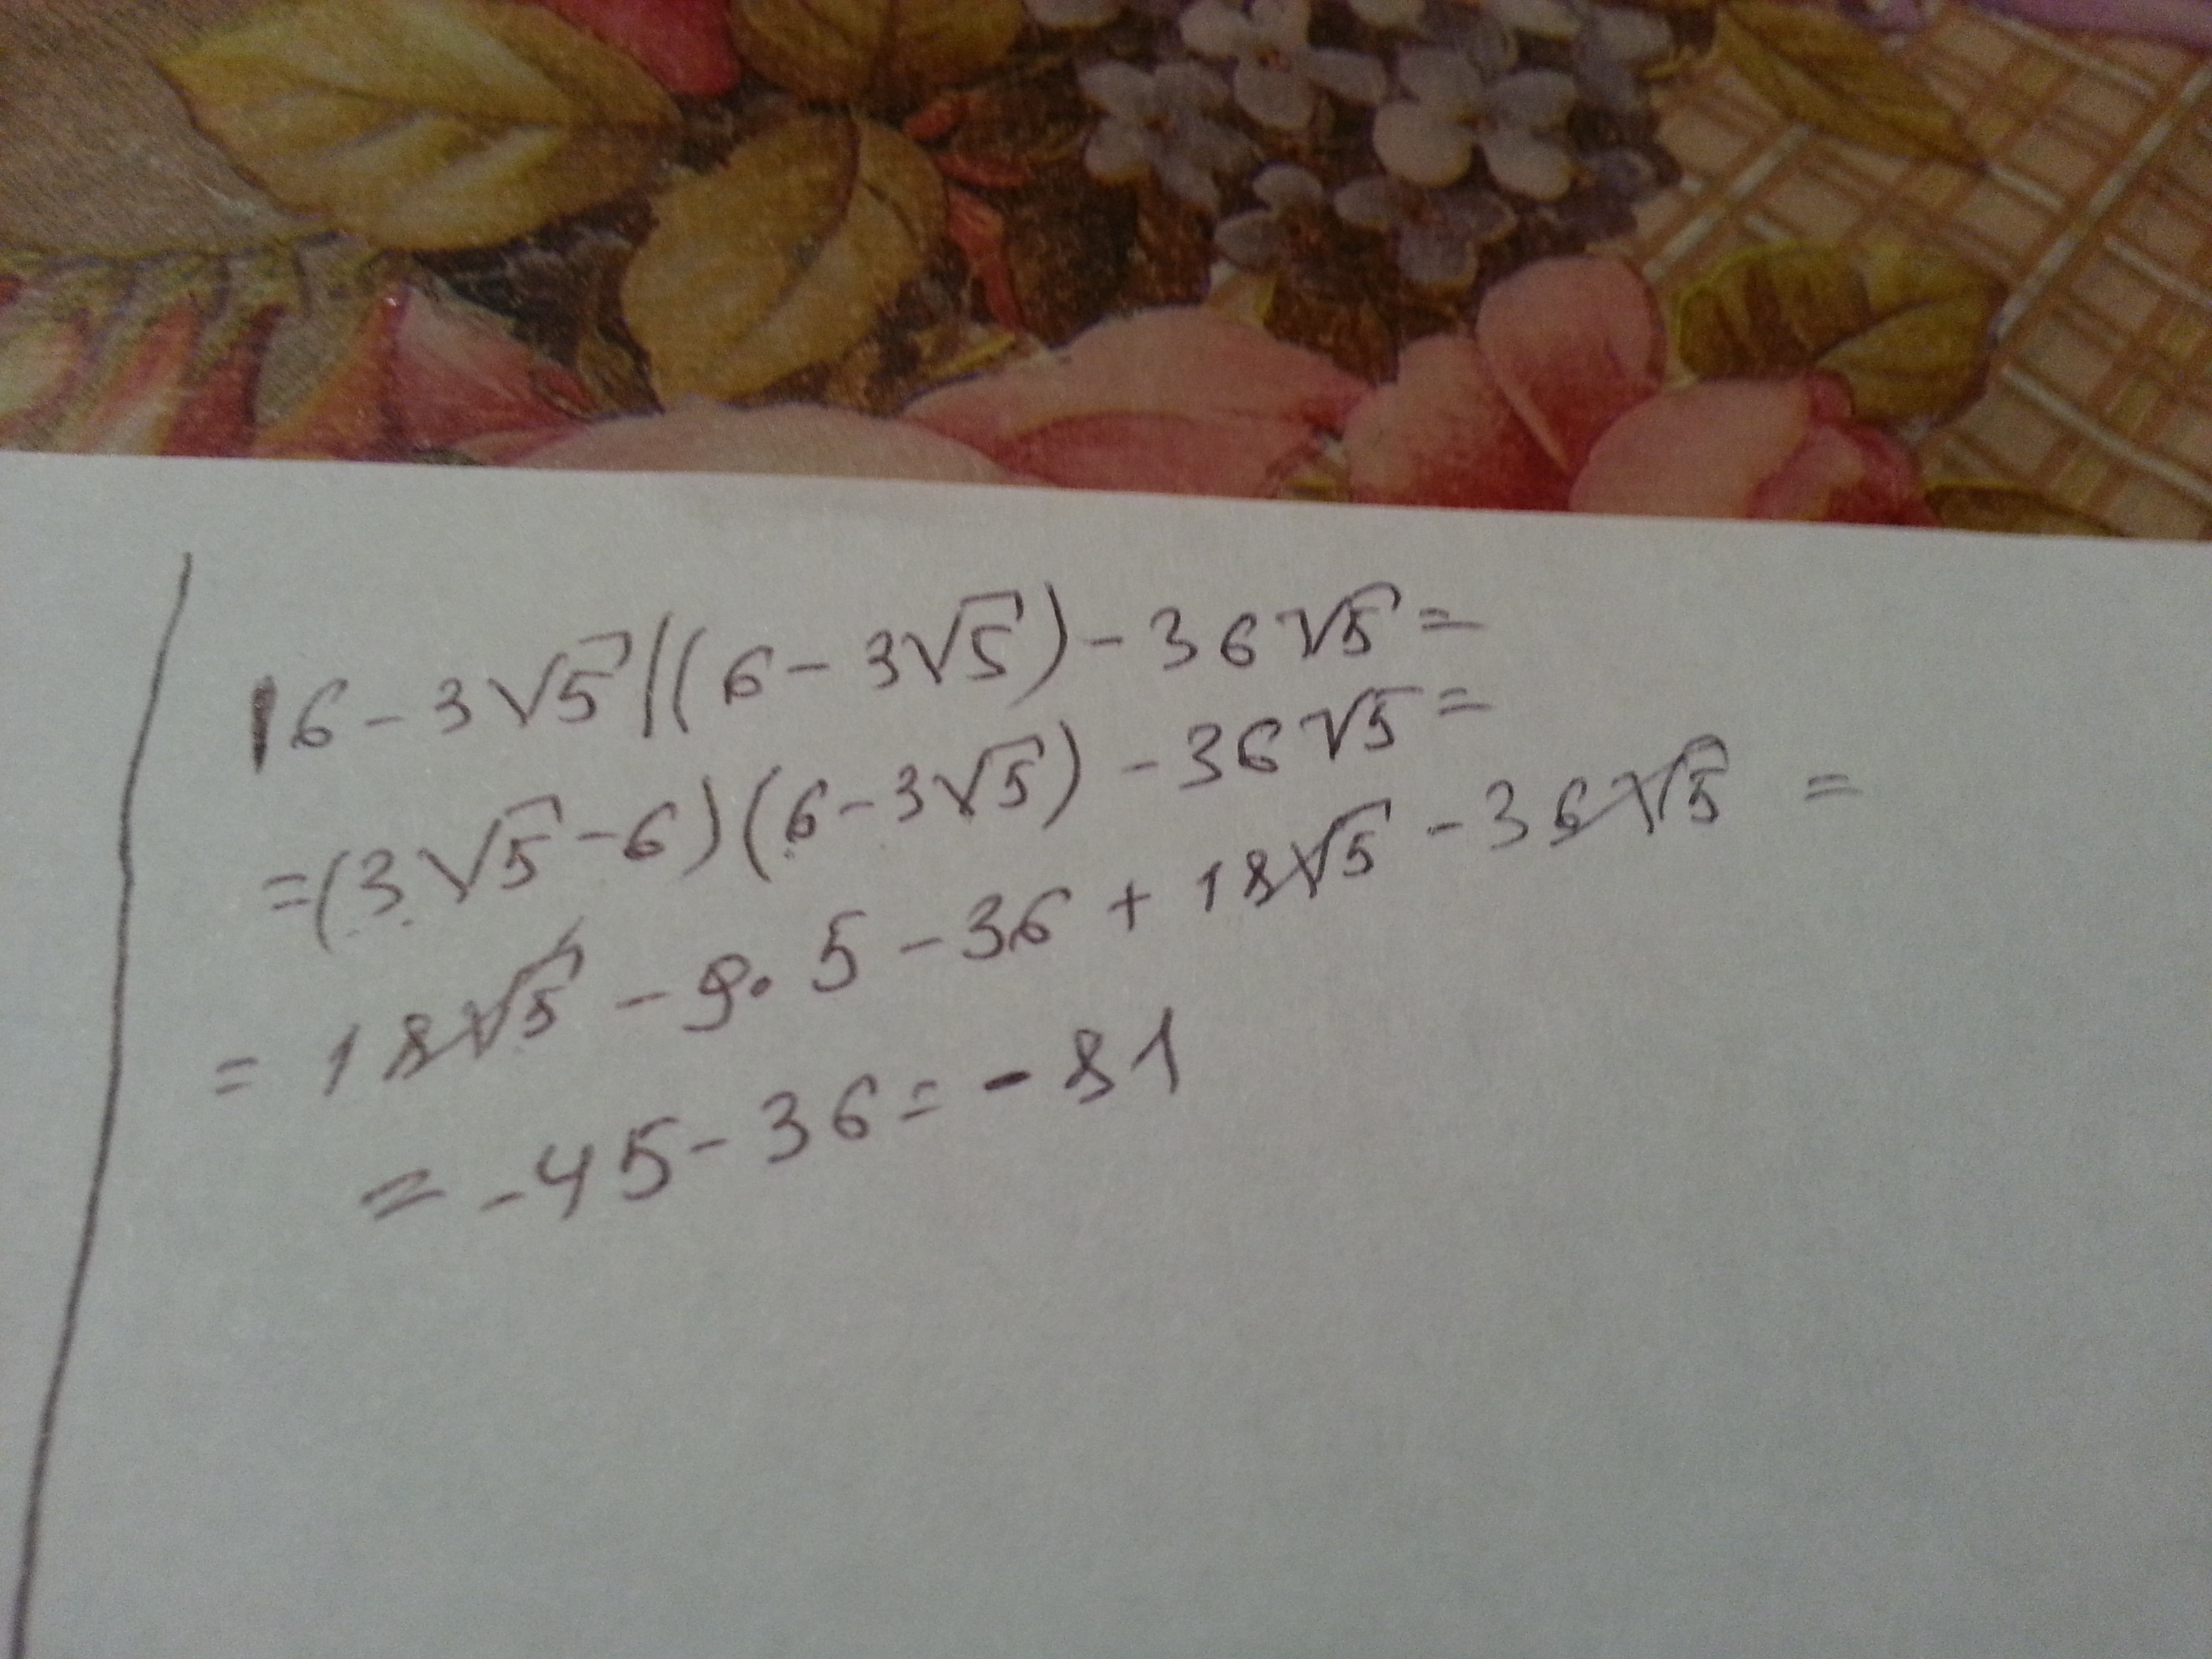 |6-3√5|(6-3√5)-36√5=
=(3√5-6)(6-3√5)-36√5=
=18√5-9·5-36+18√5-36√5=
=-45-36=-81